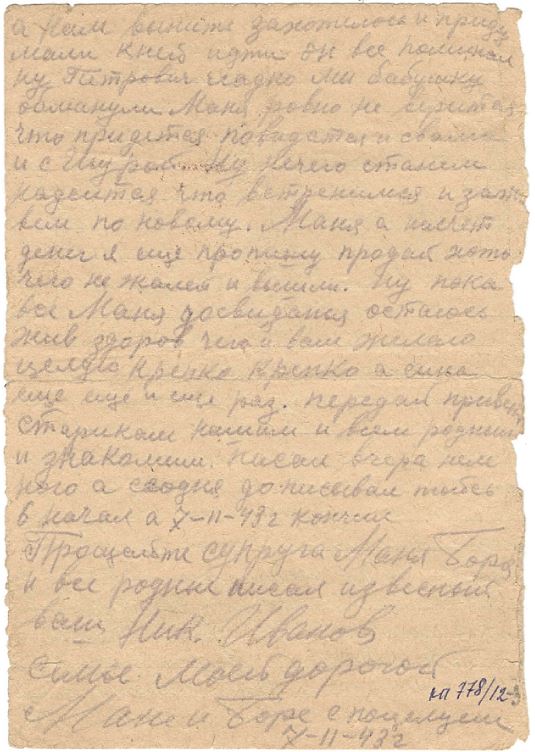 а нам выпите захотелось и приду
мали к ней идти он все поминал
ну Петрович гладко мы бабушку
обманули Маня ровно не верится
что придется повидатся и с вами
и с Шурой. Ну нечего станем
надеится что встренимся и зажи
вем по новому. Маня а насчет
денег я еще пропишу продай хоть
чего не жалей и вышли. Ну пока
все Маня досвидания остаюсь
жив здоров чего и вам желаю
целую крепко крепко а сина
еще еще и еще раз. передай привет
старикам нашим и всем родным
и знакомым. писал вчера нем
ного а сегодня дописывал тоись
6 начал а 7-II-43г кончил
Прощайте супруга Маня Боря
и все родные писал известный
ваш Ник. Иванов
семье моей дорогой
кп 778/12-3
Мане и Боре с поцелуем
7-II-43г